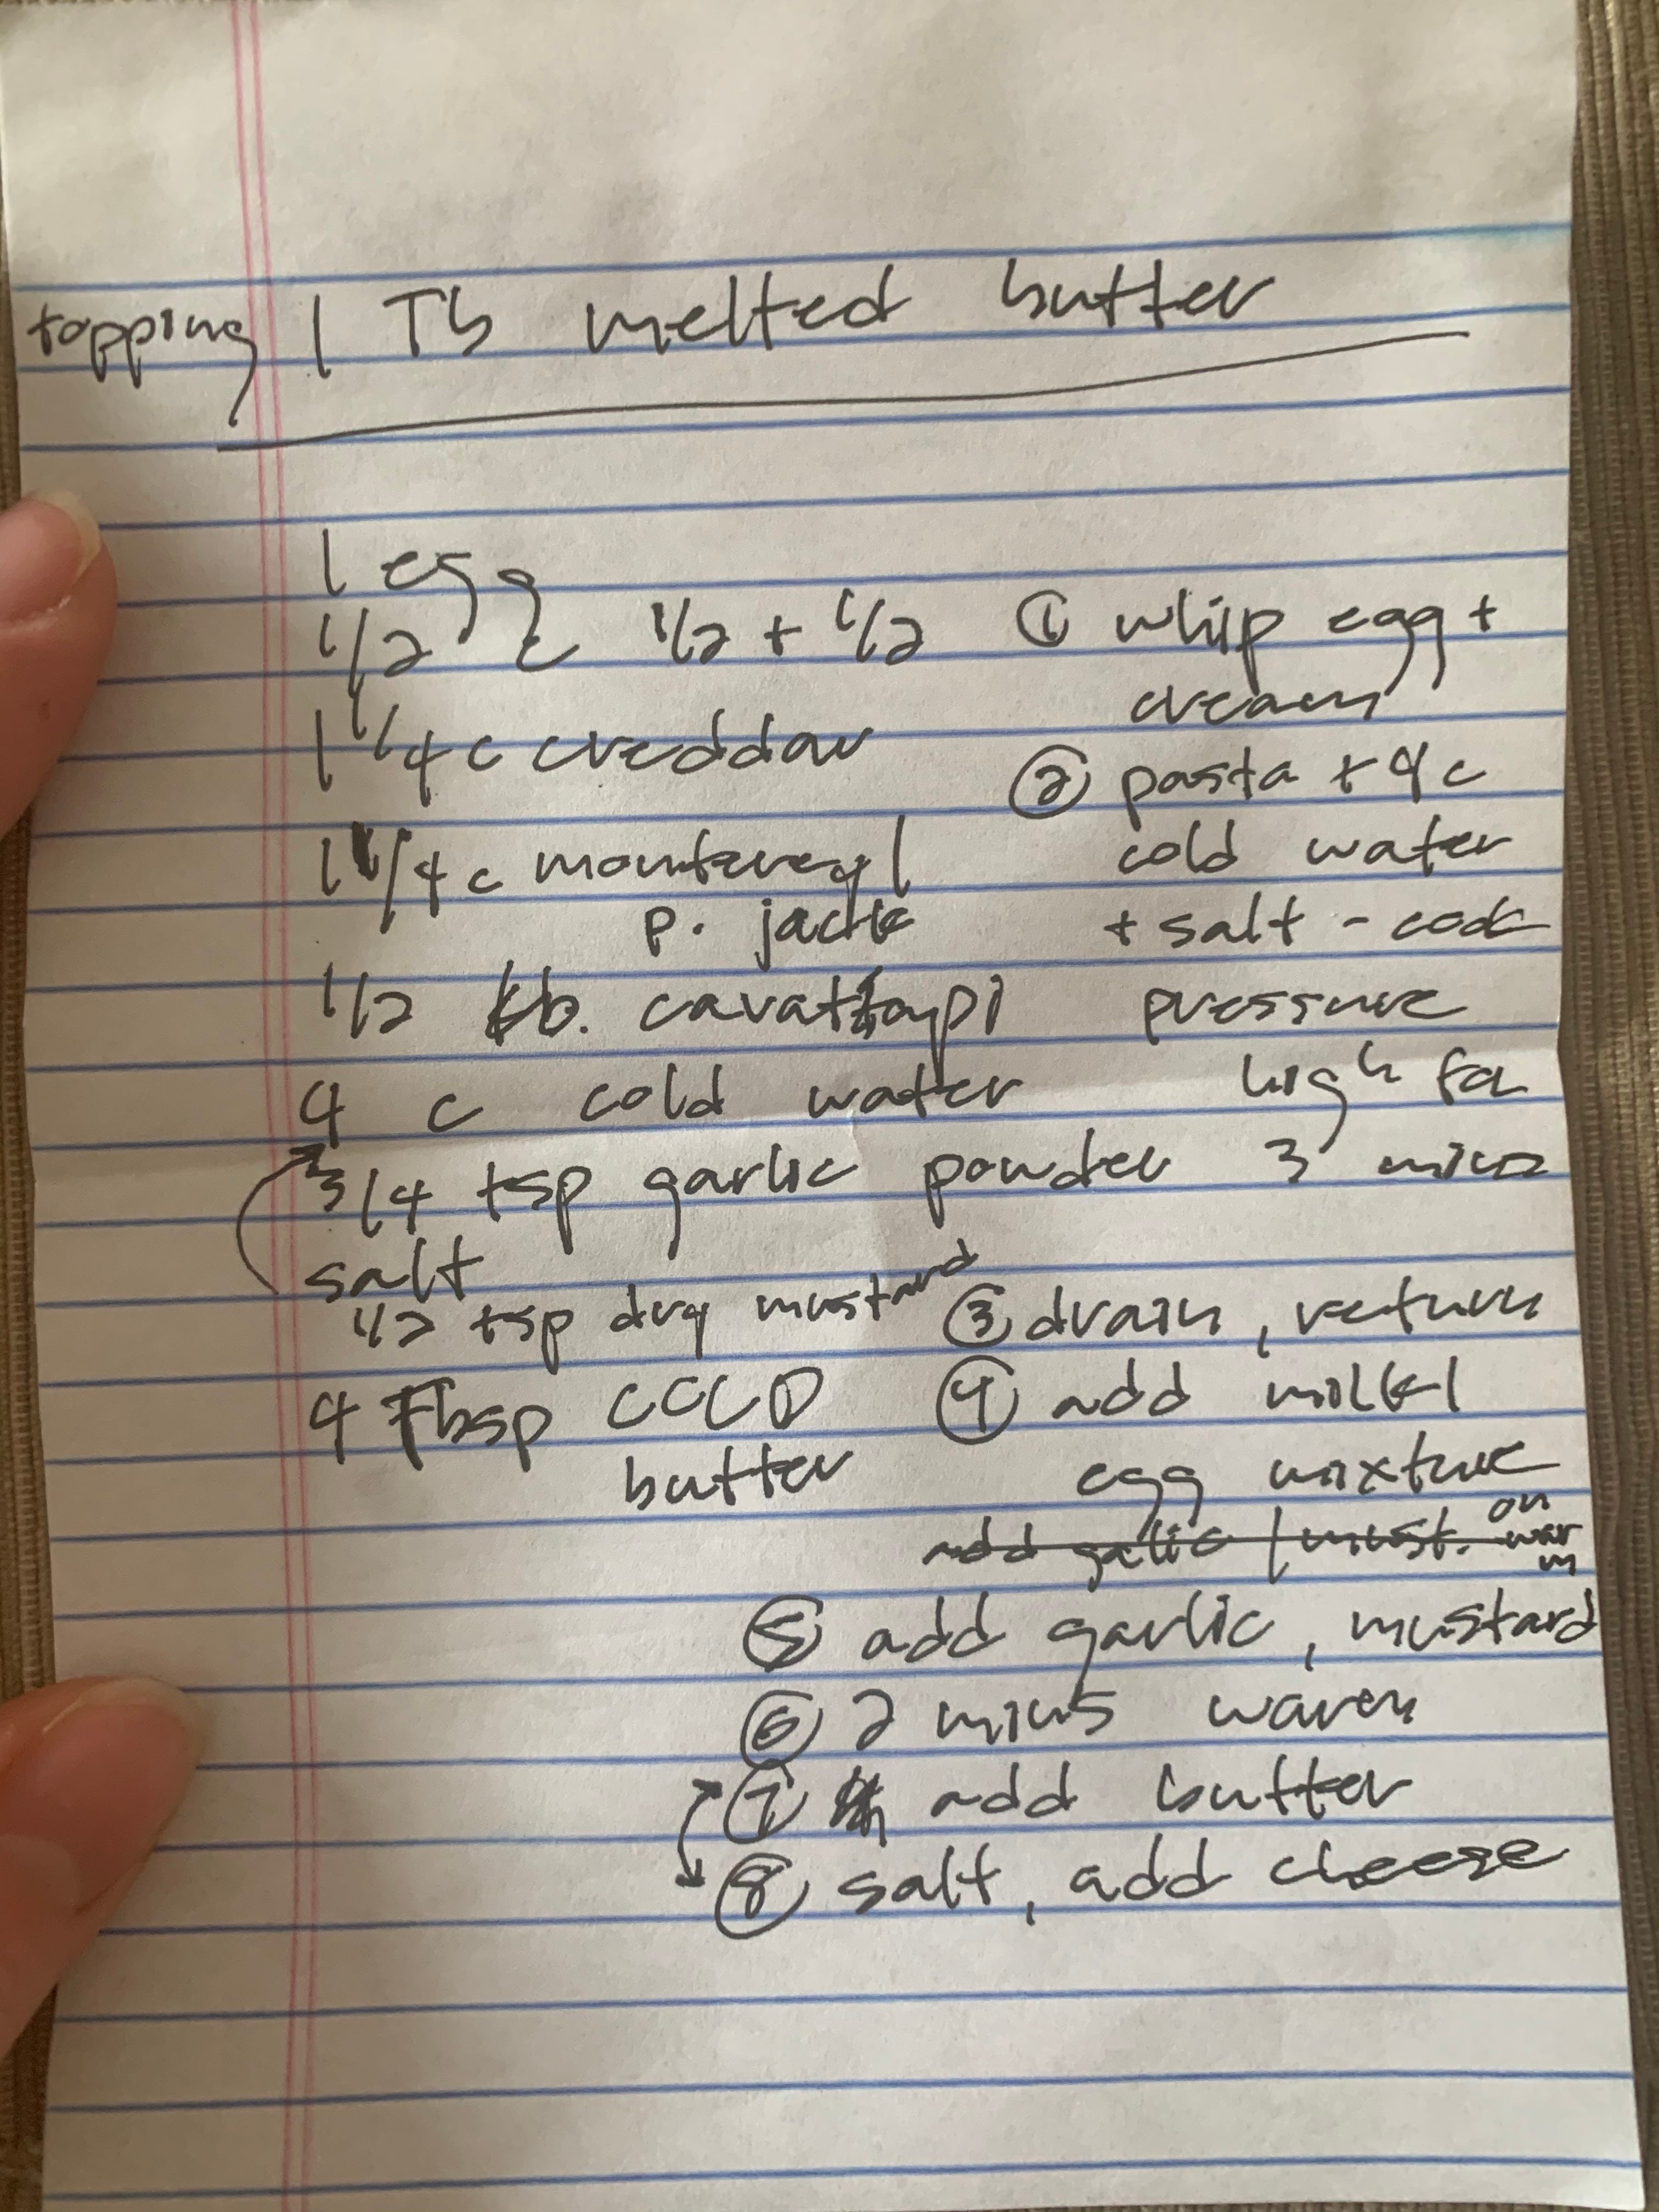 topping 1 Tb melted butter
1 egg
1/2 c 1/2 + 1/2
1 1/4 c creddar
1 1/4 c monterey/
p. jack
1/2 lb. cavattapi
4 c cold water
3/4 tsp garlic powder
salt
1/2 tsp dry mustard
4 Tbsp COLD
butter
① whip egg +
cream
② pasta + 4 c
cold water
+ salt - cook
pressure
high for
3 mins
③ drain, return
④ add milk/
egg mixture
add galic / must. on
warm
⑤ add garlic, mustard
⑥ 2 mins warm
⑦ add butter
⑧ salt, add cheese